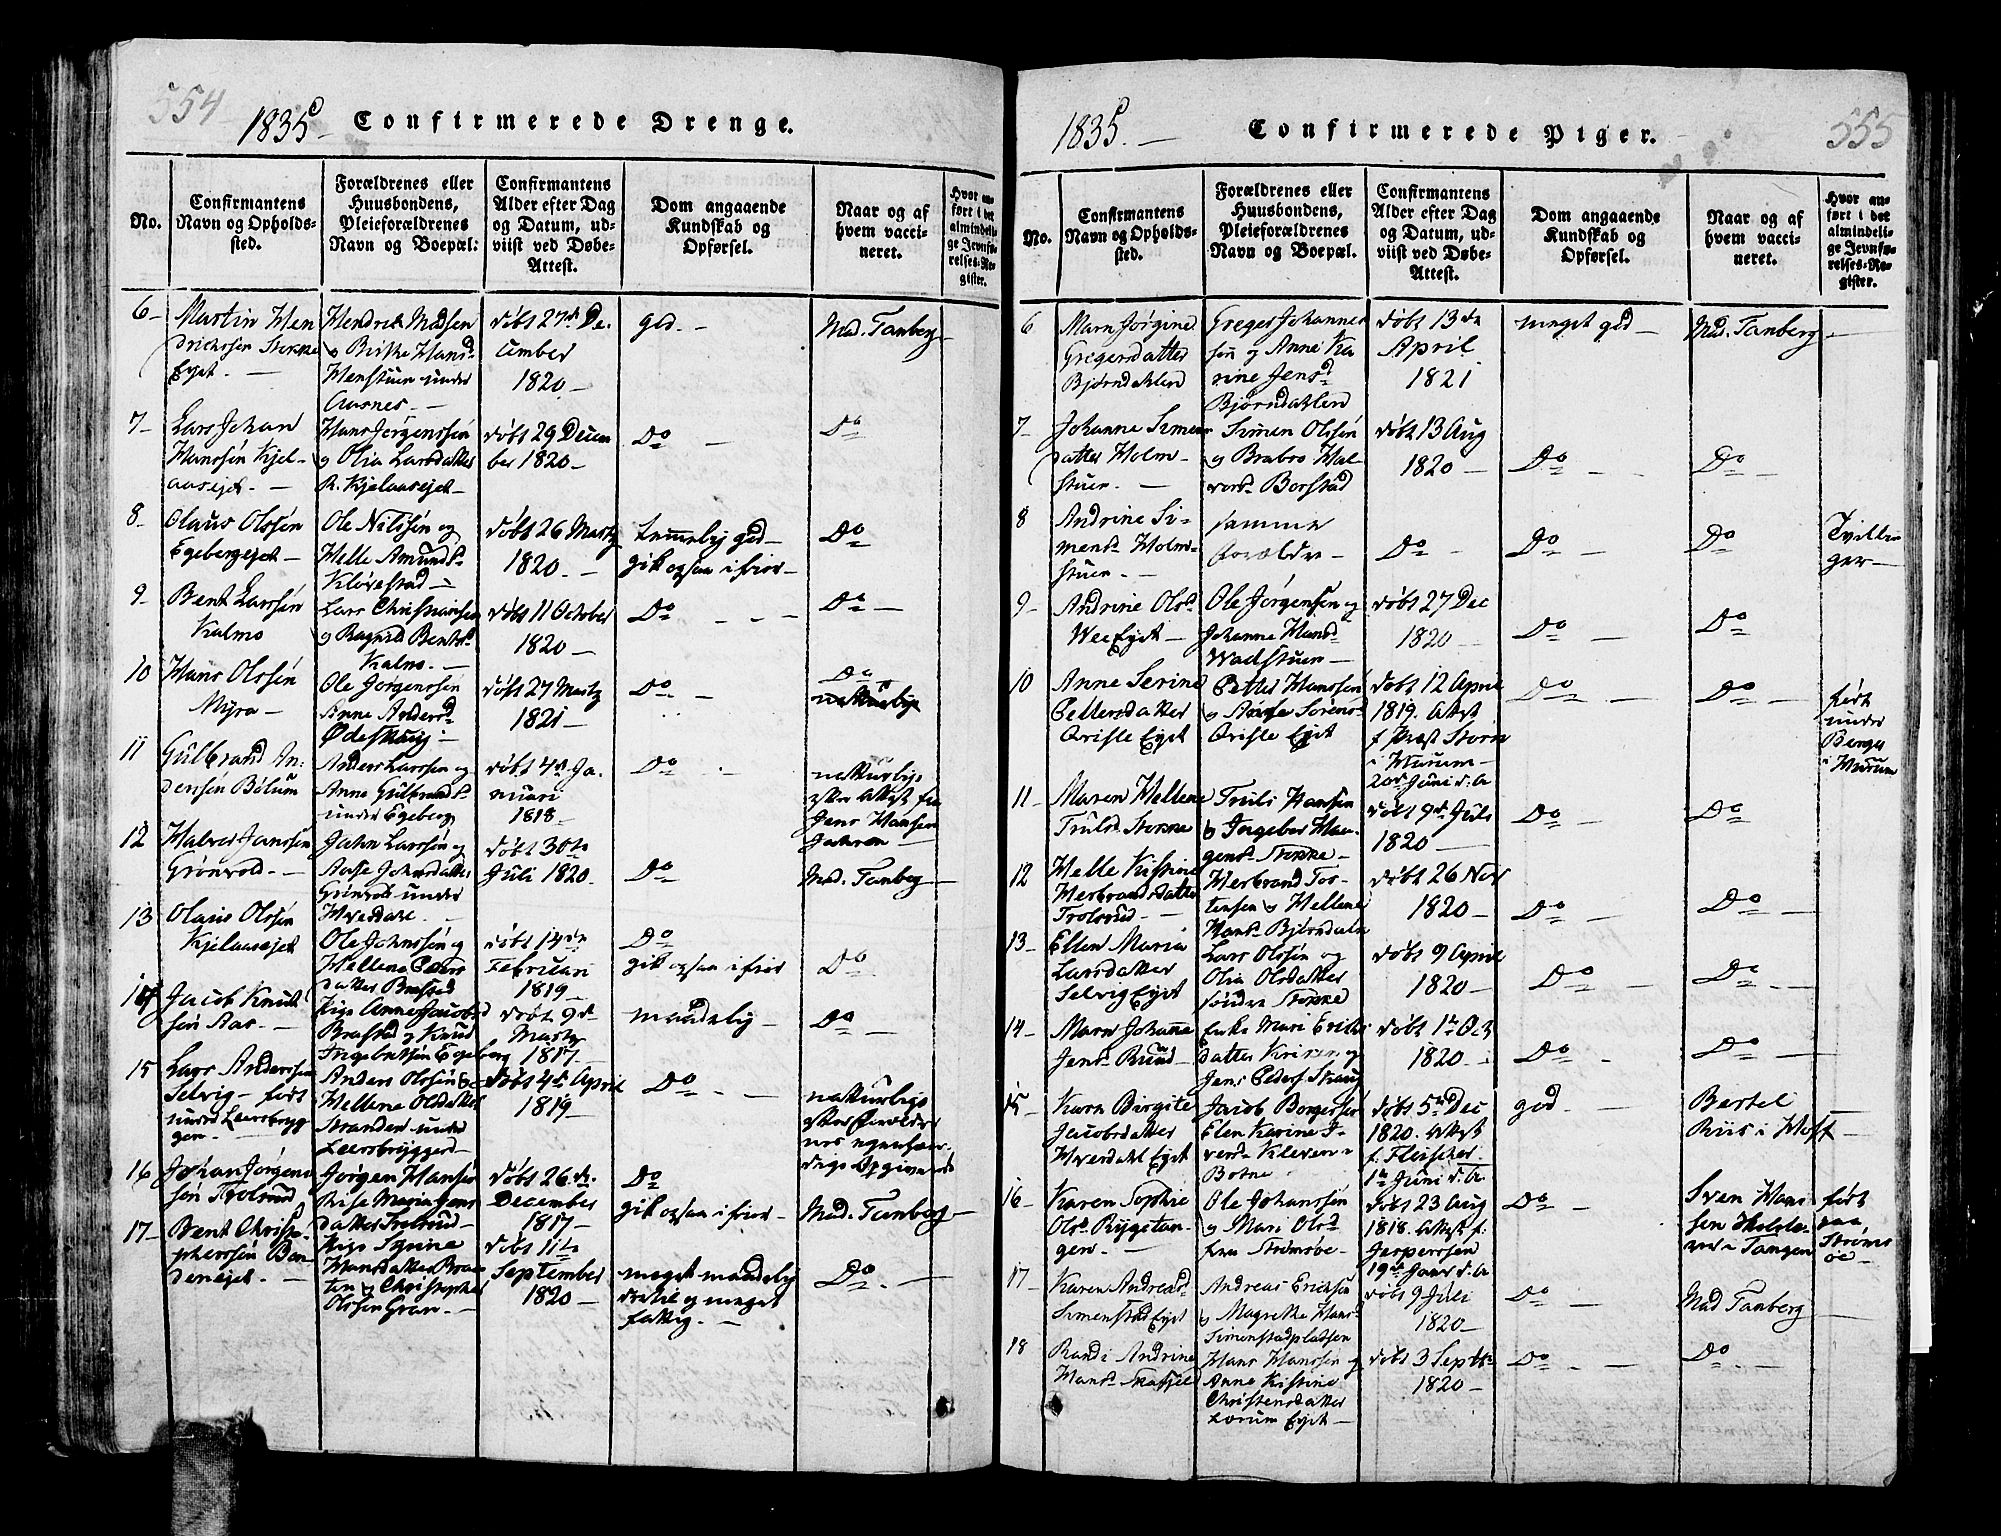 554
1835
Confirmerede Drenge.
No.
Confirmantens
Navn og Opholds-
sted.
Forældrenes eller
Huusbondens,
Pleieforældrenes
Navn og Boepæl:
Confirmantens
Alder efter Dag
og Datum, ud-
viist ved Døbe-
Attest.
Dom angaaende
Kundskab og
Opførsel.
Naar og af
hvem vacci-
neret.
Hvor an-
ført i det
almindeli-
ge Jevnfø-
relses-Re-
gister.
6
Martin Hen
drichssen Stokke
Eyet.
Hendrik Madsen
og Birthe Hansd
Wenstuen under
Aasnes.
døbt 27de De-
cember
1820
god.
Mad. Tanberg
7
Lars Johan
Hanssen Kjel-
aasejet
Hans Jørgenssen
og Olia Larsdatter
Kjelaasejet
døbt 29 Decem
ber 1820
Do
Do
8
Olaus Olssen
Egebergejet
Ole Nilssen og
Helle Amunds
Klørestad
døbt 26 Martz
1820.
temmelig god
gik ogsaa i fior
Do
9
Bent Larssen
Kalmo
Lars Christiansen
og Ragnild Bents
Kalmo.
døbt 11 October
1820
Do
Do
10
Hans Olssen
Myra
Ole Jørgenssen
Anne Andersd
Ødeskaug
døbt 27 Martz
1821
Do
Do
11
Gulbrand An-
dersen Bølum
Anders Larssen og
Anne Gulbrands
under Egeberg
døbt 4de Ja-
nuari
1818
Do
naturlige
efter Attest fra
Jens Hansen
12
Halvor Janssen
Grønvold
Jahn Larssen og
Aase Johnsdatter
Grønvold under
Hverdale.
døbt 30te
Juli 1820
Do
Mad. Tanberg
13
Olaus Olssen
Kjelaasejet
Ole Johnssen og
Hellene Eders
datter Brastad
døbt 14de
Februari
1819
Do
gik ogsaa i fior
Do
14
Jacob Knut
sen Aas
Pige Anne Jacobsd
Brastad og Knud
Ingebretsen Egeberg
døbt 9de
Martz
1817
maadelig
Do
15
Lars Anderssen
Selvig født
under Leersbryg
gen
Anders Olssen og
Hellene Olsdatter
Stranden under
Leersbryggen
døbt 4de April
1819
Do
naturlige
efter Forældre
nes egenhæn
dige Opgivende
16
Johan Jørgens
sen Trolsrud
Jørgen Hansen
Risе Maria Jens
datter Trolsrud
døbt 26de
December
1817
Do
gik ogsaa i fior
Mad. Tanberg
17
Bent Christo
phersen Ban
denejet
Pige Syrine
Hansdatter Braa
ten og Christopher
Olssen Gran
døbt 11te
September
1820
meget maadelig
og meget
fattig.
Do
1835.
Confirmerede Piger.
555
No.
Confirmantens
Navn og Opholds-
sted.
Forældrenes eller
Huusbondens,
Pleieforældrenes
Navn og Boepæl.
Confirmantens
Alder efter Dag
og Datum, ud-
viist ved Døbe-
Attest.
Dom angaaende
Kundskab og
Opførsel.
Naar og af
hvem vacci-
neret.
Hvor an-
ført i det
almindeli-
ge Jevnfø-
relses-Re-
gister.
6
Marn Jørgine
Gregersdatter
Bjørndahlen
Greger Johannes
sen og Anne Ka
rine Jensd
Bjørndahlen
døbt 13de
April
1821
meget god
Mad. Tanberg
7
Johanne Simens
datter Holm-
stuen
Simen Olssen
og Brabro Hal-
vorsd Borstad
døbt 13 Aug
1820
Do
Do
8
Andrine Si-
mensd Holm-
stuen.
samme
forældre
Do
Do
Do
Tvillin
ger
9
Andrine Olsd
Wee Eyet
Ole Jørgensen og
Johanne Hansd
Wadstuen
døbt 27 Dec
1820
Do
Do
10
Anne Serine
Pettersdatter
Qrifle Eyet
Petter Hanssen
og Sørens
Qrifle Eyet
døbt 12 April
1819. Attest
f. Præst Storm
i Hurum
20de Juni d. A
Do
Do
født
under
Berger
i Hurum
11
Maren Hellene
Trulsd Stokke
Truls Hansen
og Ingebor Mag-
gensd Stokke
døbt 9de Juli
1820
Do
Do
12
Helle Kistine
Herbrandsdatter
Trolsrud
Herbrand Tor-
tensen og Hellene
Hansd Bjørndalen
døbt 26 Nov
1820
Do
Do
13
Ellen Maria
Larsdatter
Selvig Eyet
Lars Olssen og
Olia Olsdatter
søndre Stokke
døbt 9 April
1820
Do
Do
14
Marn Johanne
Jensd Ruud
Enke Mari Eriks
datter og
Jens Skaug
døbt 1te Oct
1820
Do
Do
15
Karn Birgite
Jacobsdatter
Hverdahl Eyet
Jacob Borgersen
Elen Karine I-
versd Kleven i
Botne
døbt 5te Dec
1820. Attest
f. Fleischer
1te Juni d. A.
god
Bertel
Riis i Hoff
16
Karen Sophie
Olsd Rygetan-
gen
Ole Johanssen
og Mari Olsd
fra Strømsøe
døbt 23 Aug
1818. Attest f.
Jesperssen
19de Janr d. A
Do
Sven Hans
sen
i Tangen
født
paa
Strøms
øe
17
Karen Andreasd
Simenstad Eyet
Andreas Ericksen
og Magrethe Hans
Simenstadplatsen
døbt 9 Juli
1820
Do
Mad Tanberg
18
Randi Andrine
Hansd Skafjeld
Hans Hanssen og
Anne Kistine
Christensdatter
Eyet
døbt 3 Septbr
1820
Do
Do